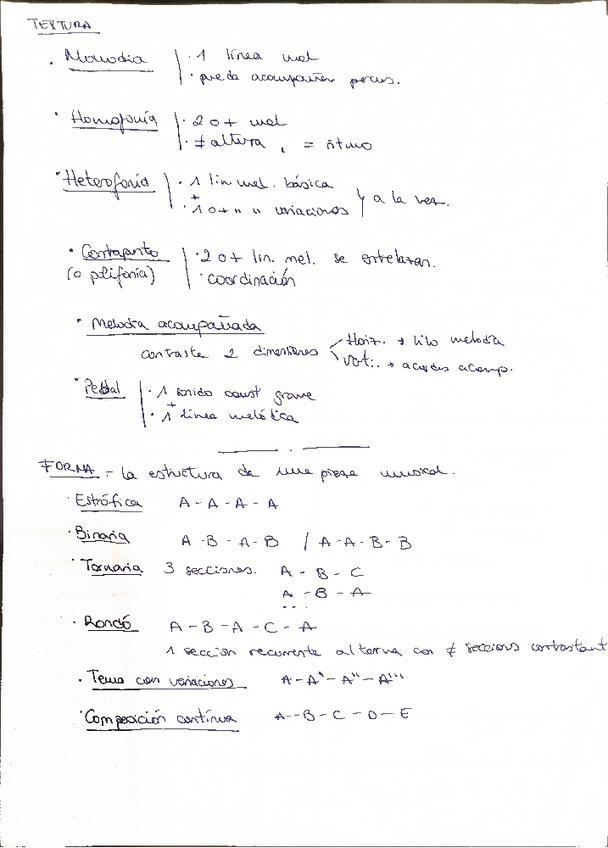 TEXTURA
· Monodia | · 1 línea mel
· puede acompañar percus.
· Homofonía | · 2 o + mel
· ≠ altura, = ritmo
· Heterofonía | · 1 lin mel. básica
+
· 1 o + " " variaciones } a la vez.
· Contrapunto | · 2 o + lin. mel. se entelazan.
(o polifonía) · coordinación
· Melodía acompañada
contraste 2 dimensiones Horiz. → hilo melodía
Vert. → acordes acomp.
· Pedal | · 1 sonido const grave
+
· 1 línea melótica
FORMA - la estructura de una pieza musical.
· Estrófica A - A - A - A
· Binaria A - B - A - B / A - A - B - B
· Ternaria 3 secciones. A - B - C
A - B - A
...
· Rondó A - B - A - C - A
1 sección recurrente alterna con ≠ seccions contrastant
· Tema con variaciones A - A' - A'' - A'''
· Composición contínua A - B - C - D - E